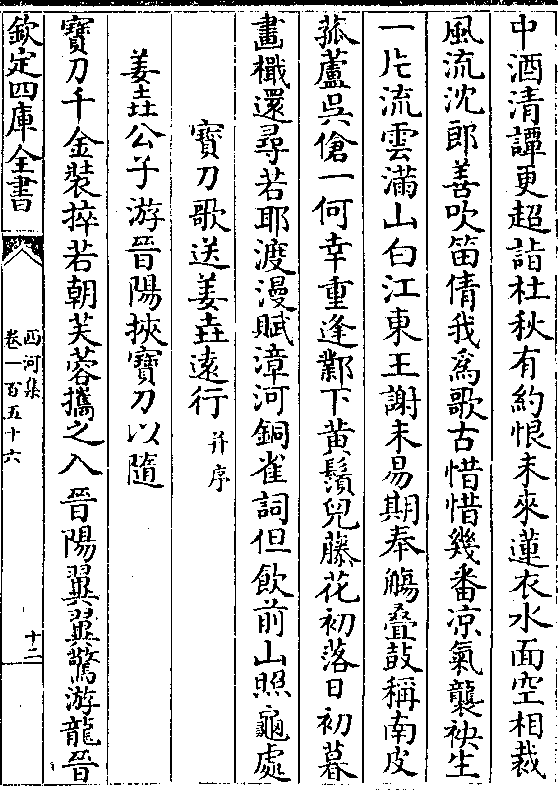 中酒清譚更超詣杜秋有約恨未來蓮衣水面空相裁
風流沈郎善吹笛倩我為歌古惜惜幾番凉氣襲袂生
一片流雲滿山白江東王謝未易期奉觴疊鼓稱南皮
菰蘆吳傖一何幸重逢鄴下黄鬚兒藤花初落日初暮
畫檝還尋若耶渡漫賦漳河銅雀詞但飲前山照龜處
寶刀歌送姜垚遠行并序
姜垚公子游晉陽挾寶刀以隨
寶刀千金裝捽若朝芙蓉攜之入晉陽翼翼驚游龍晉
欽定四庫全書
西河集
卷一百五十六
十二